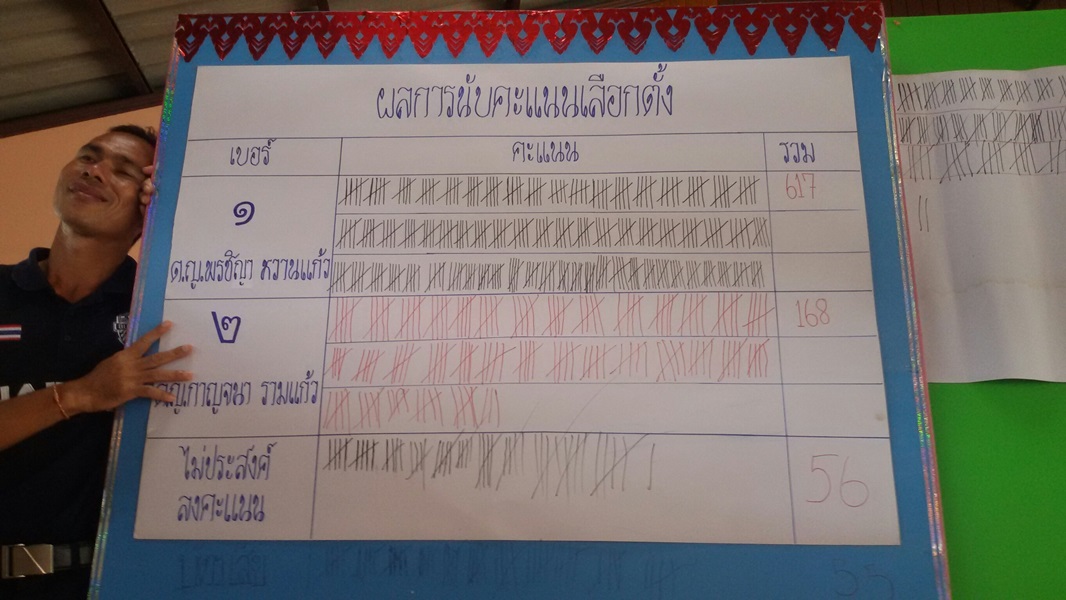 ผลการนับคะแนนเลือกตั้ง
เบอร์ คะแนน รวม
๑ 617
ด.ญ.พรชิญา หวานแก้ว
๒ 168
ด.ญ.กาญจนา รามแก้ว
ไม่ประสงค์ 56
ลงคะแนน
บัตรเสีย 55